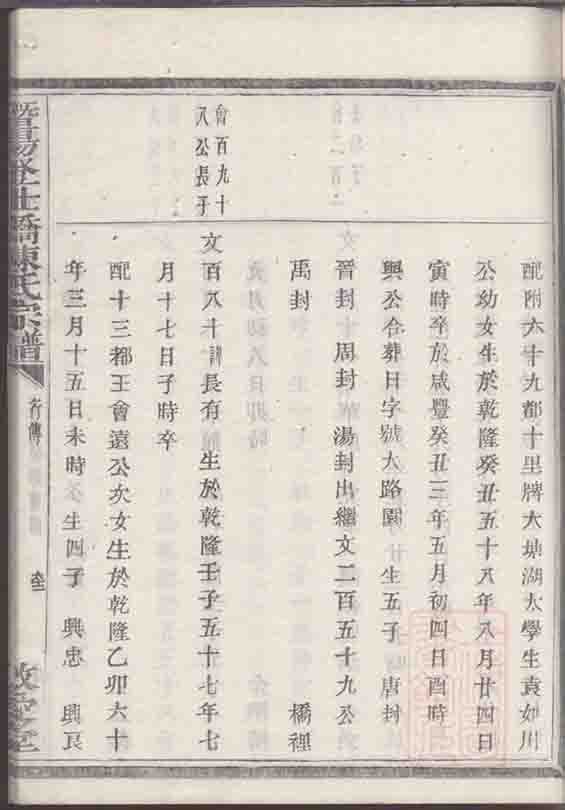 配附六十九都十里牌大塘湖太學生袁如川
公幼女生於乾隆癸丑五十八年八月廿四日
寅時卒於咸豐癸丑三年五月初四日酉時
興公合葬日字號大路園 生五子 唐封
晉封 周封 湯封出繼文二百五十九公
禹封 橋裡
會百九十
八公長子
文百八十訓長有 生於乾隆壬子五十七年七
月十七日子時卒
配十三都王會遠公次女生於乾隆乙卯六十
年三月十五日未時 生四子 興忠 興良
暨陽登仕橋陳氏宗譜
行傳